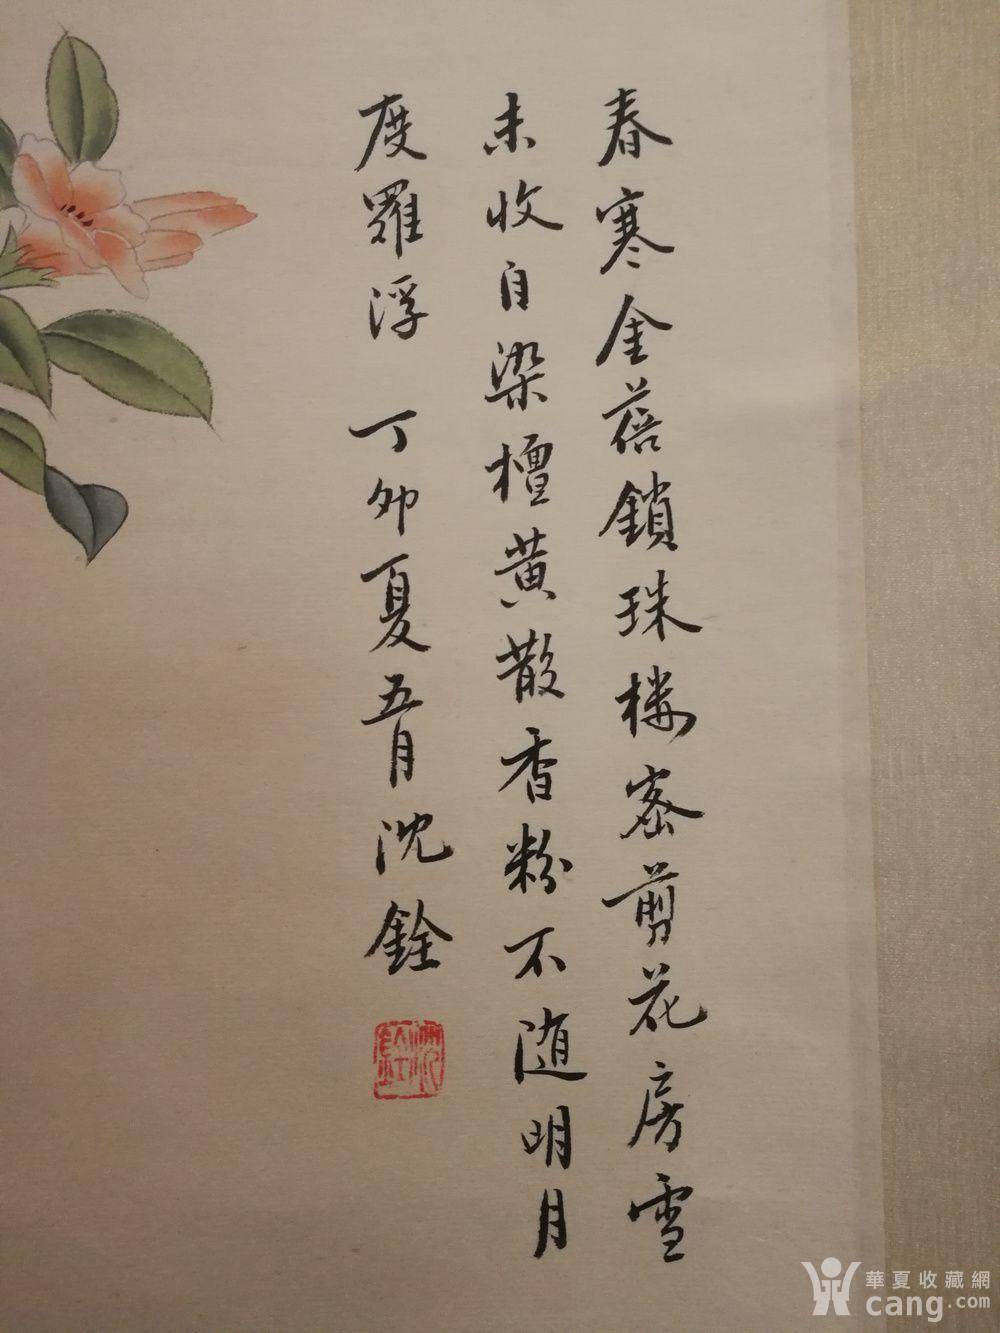 春寒金蓓鎖珠楼密剪花房雪
未收自染檀黄散香粉不随明月
度羅浮 丁卯夏五月沈銓
沈銓
華夏收藏網
cang.com